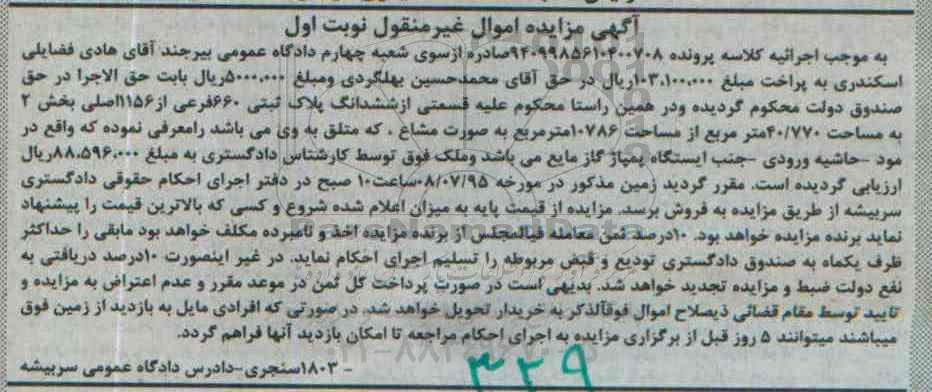 آگهی مزایده اموال غیرمنقول نوبت اول
به موجب اجرائیه کلاسه پرونده ۹۴۰۹۹۸۵۶۱۰۴۰۰۷۰۸صادره ازسوی شعبه چهارم دادگاه عمومی بیرجند آقای هادی فضایلی
اسکندری به پراخت مبلغ ۱۰۳.۱۰۰.۰۰۰ریال در حق آقای محمدحسین بهلگردی ومبلغ ۵۰۰۰.۰۰۰ریال بابت حق الاجرا در حق
صندوق دولت محکوم گردیده ودر همین راستا محکوم علیه قسمتی ازششدانگ پلاک ثبتی ۶۶۰فرعی از۱۱۵۶اصلی بخش ۲
به مساحت ۴۰/۷۷۰متر مربع از مساحت ۱۰۷۸۶مترمربع به صورت مشاع ، که متلق به وی می باشد رامعرفی نموده که واقع در
مود -حاشیه ورودی -جنب ایستگاه پمپاژ گاز مایع می باشد وملک فوق توسط کارشناس دادگستری به مبلغ ۸۸.۵۹۶.۰۰۰ریال
ارزیابی گردیده است. مقرر گردید زمین مذکور در مورخه ۰۸/۰۷/۹۵ساعت۱۰ صبح در دفتر اجرای احکام حقوقی دادگستری
سربیشه از طریق مزایده به فروش برسد. مزایده از قیمت پایه به میزان اعلام شده شروع و کسی که بالاترین قیمت را پیشنهاد
نماید برنده مزایده خواهد بود. ۱۰درصد ثمن معامله فیالمجلس از برنده مزایده اخذ و نامبرده مکلف خواهد بود مابقی را حداکثر
ظرف یکماه به صندوق دادگستری تودیع و قبض مربوطه را تسلیم اجرای احکام نماید. در غیر اینصورت ۱۰درصد دریافتی به
نفع دولت ضبط و مزایده تجدید خواهد شد. بدیهی است در صورت پرداخت کل ثمن در موعد مقرر و عدم اعتراض به مزایده و
تایید توسط مقام قضائی ذیصلاح اموال فوقآلذکر به خریدار تحویل خواهد شد. در صورتی که افرادی مایل به بازدید از زمین فوق
میباشند میتوانند ۵ روز قبل از برگزاری مزایده به اجرای احکام مراجعه تا امکان بازدید آنها فراهم گردد.
- ۱۸۰۳سنجری-دادرس دادگاه عمومی سربیشه
۳۳۹